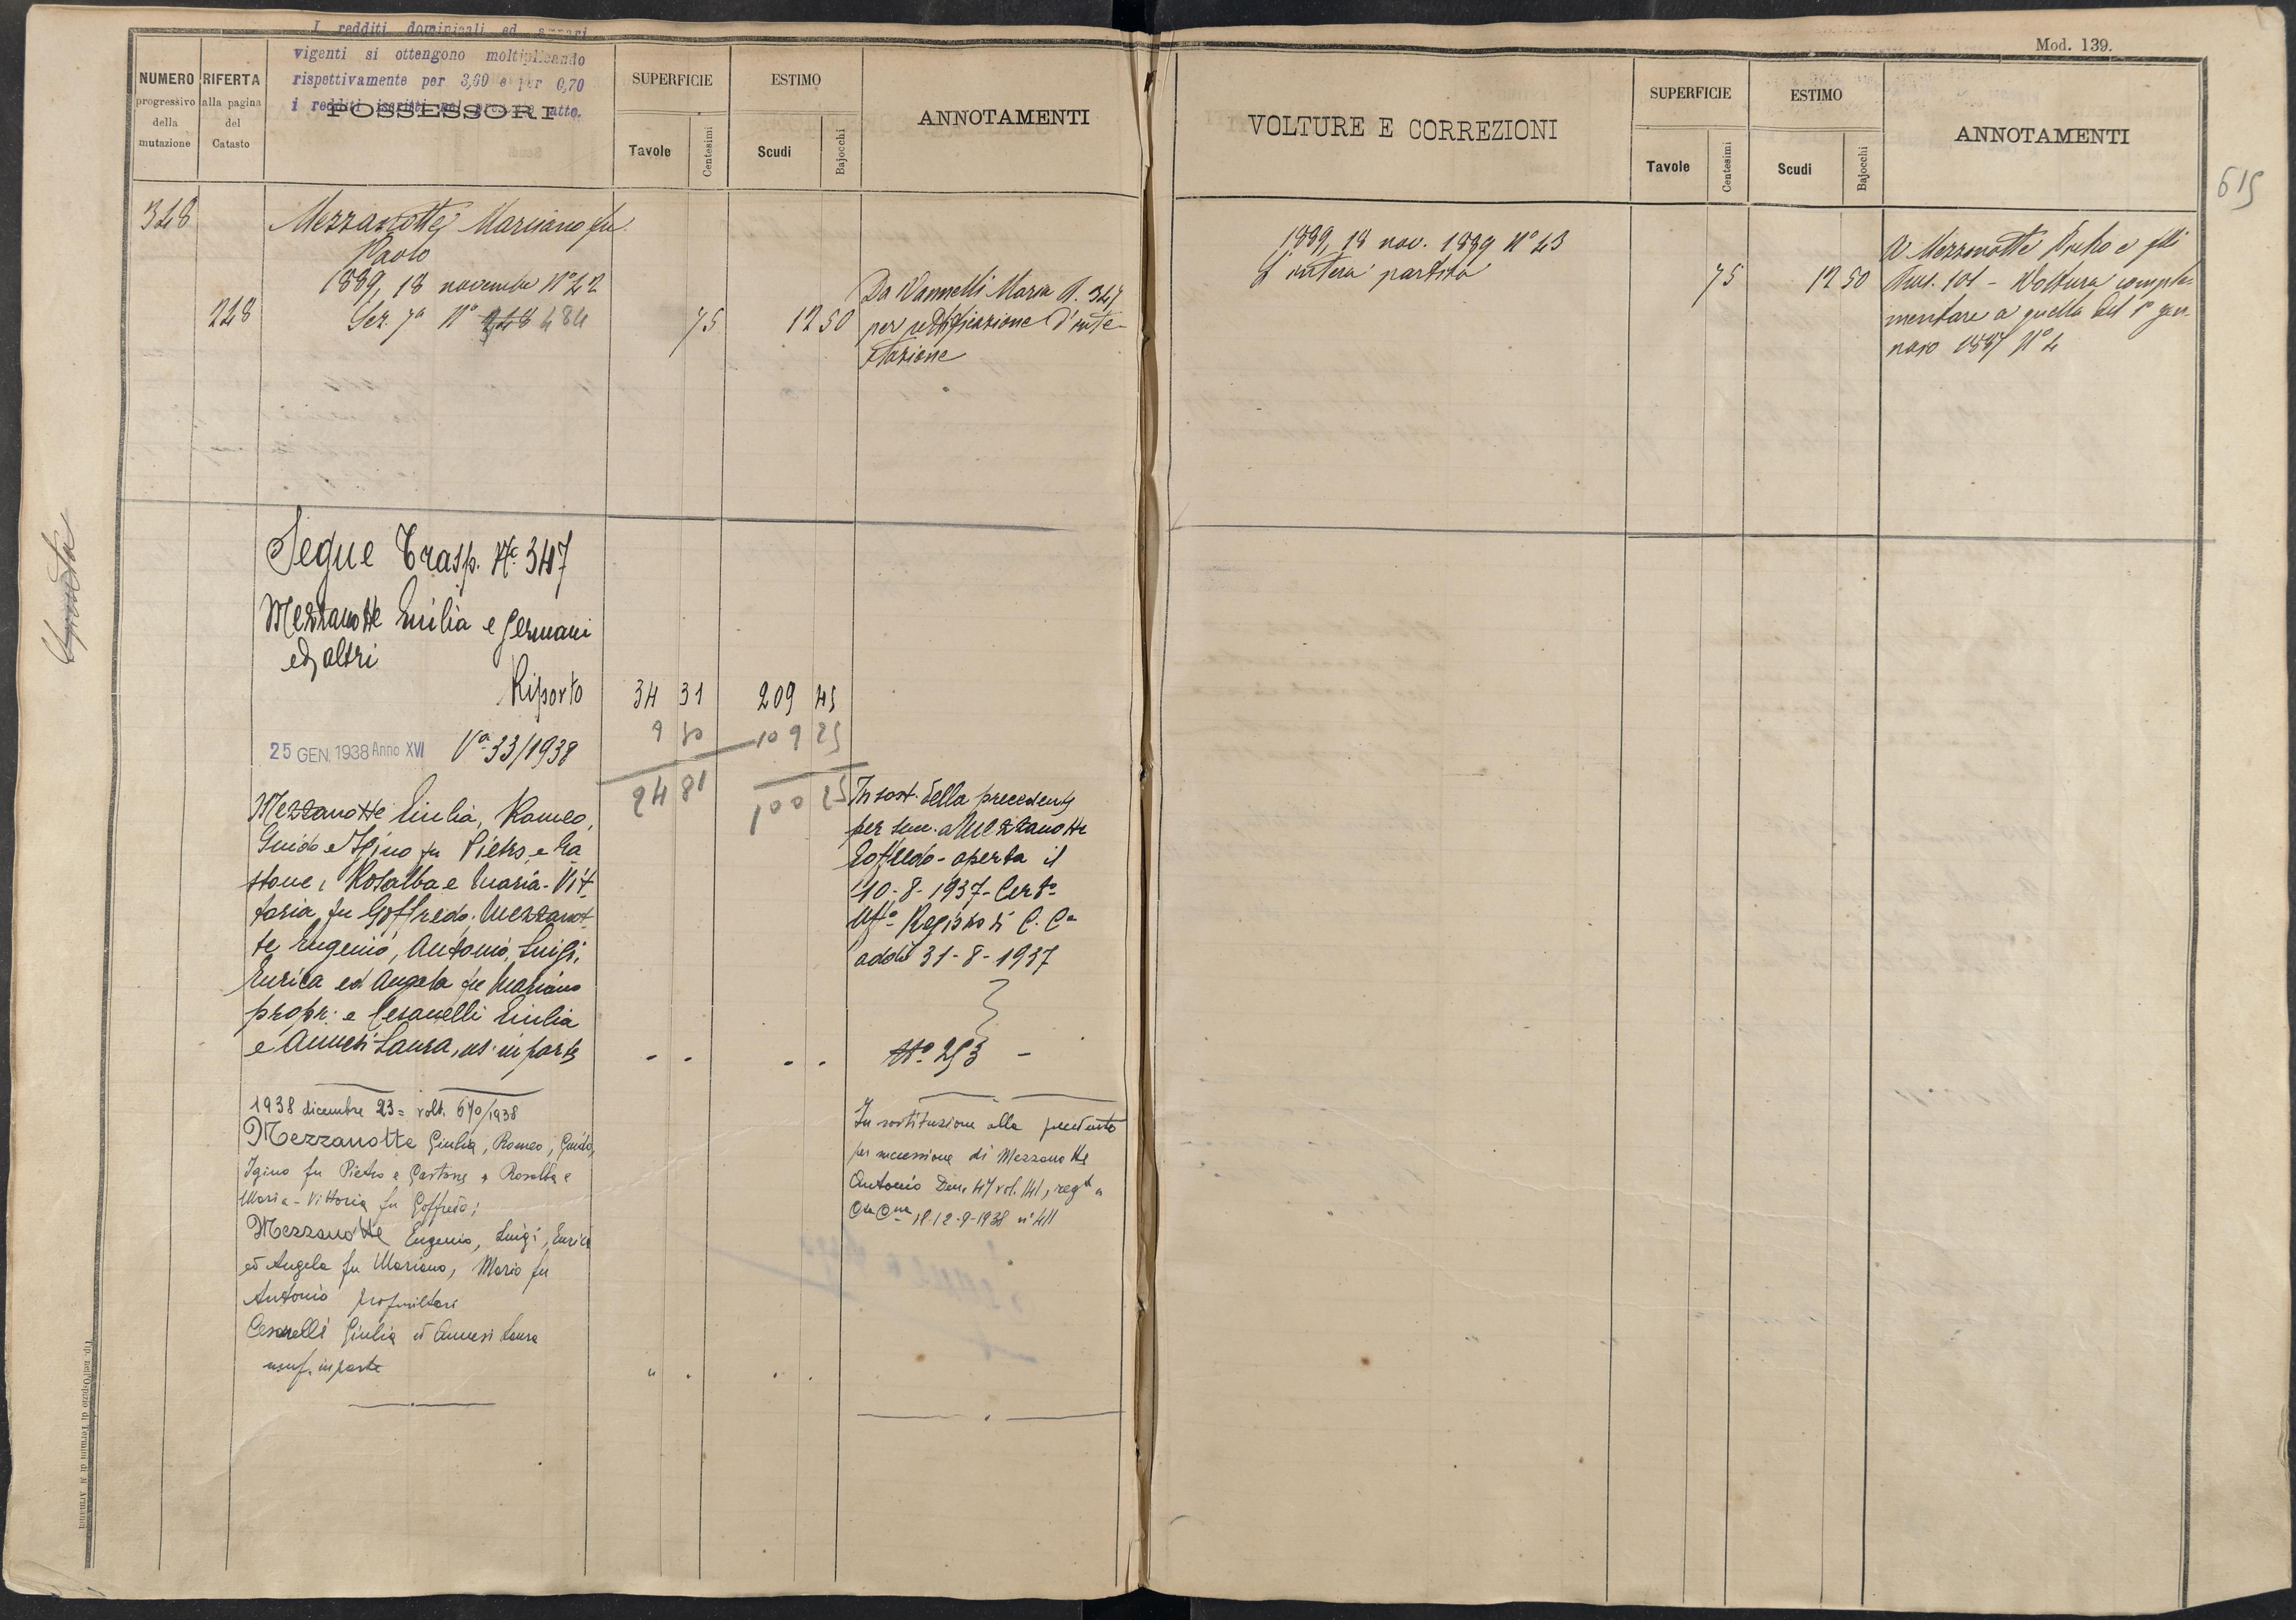 I redditi dominicali ed agrari
vigenti si ottengono moltiplicando
rispettivamente per 3,60 e per 0,70
i redditi iscritti nel presente atto.
NUMERO
progressivo
della
mutazione
RIFERTA
alla pagina
del
Catasto
POSSESSORI
SUPERFICIE
Tavole
Centesimi
ESTIMO
Scudi
Bajocchi
ANNOTAMENTI
348
Mezzanotte Marciano fu
Paolo
1889, 18 novembre N° 42
228
Sez. 7a N° 248 484
75
12 50
Da Vannelli Maria N. 347
per rettificazione d'inte-
stazione
Segue Trasp. N° 347
Mezzanotte Giulia e Germani
ed altri
Riporto
34 31
209 45
9 50
109 25
25 GEN. 1938 Anno XVI
Va 33/1938
24 81
100 25
Mezzanotte Giulia, Romeo,
Guido e Igino fu Pietro e Ga
stone, Rosalba e Maria-Vit
toria fu Goffredo. Mezzanot
te Eugenio, Antonio, Luigi,
Enrica ed Angela fu Mariano
propr. e Cesanelli Giulia
e Annesi Laura, us. in parte
In sost. della precedente
per succ. a Mezzanotte
Goffredo - aperta il
10-8-1937 - Certo
Uffo Registro di C. Ca
addì 31-8-1937
N° 253 -
1938 dicembre 23 = volt. 670/1938
Mezzanotte Giulia, Romeo, Guido,
Igino fu Pietro e Gastone e Rosalba e
Maria-Vittoria fu Goffredo;
Mezzanotte Eugenio, Luigi, Enrica
ed Angela fu Mariano, Mario fu
Antonio proprietari
Cesarelli Giulia ed Annesi Laura
usuf. in parte
In sostituzione alla precedente
per successione di Mezzanotte
Antonio Den. 47 vol. 141, regta a
il 12-9-1938 n° 411
Mod. 139.
VOLTURE E CORREZIONI
SUPERFICIE
Tavole
Centesimi
ESTIMO
Scudi
Bajocchi
ANNOTAMENTI
615
1889, 18 nov. 1889 N° 43
L'intera partita
75
12 50
A Mezzanotte Pietro e flli
Tras. 101 - Voltura comple-
mentare a quella del 1° gen
naio 1887 N° 4